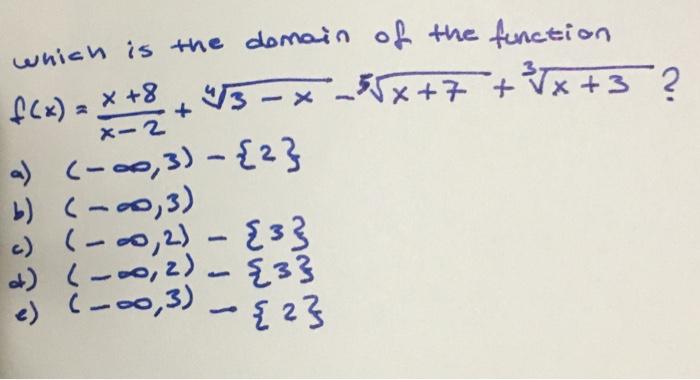 which is the domain of the function
f(x) = x+8/x-2 + ⁴√3-x - ⁵√x+7 + ³√x+3 ?
a) (-∞,3) - {2}
b) (-∞,3)
c) (-∞,2) - {3}
d) (-∞,2) - {3}
e) (-∞,3) - {2}